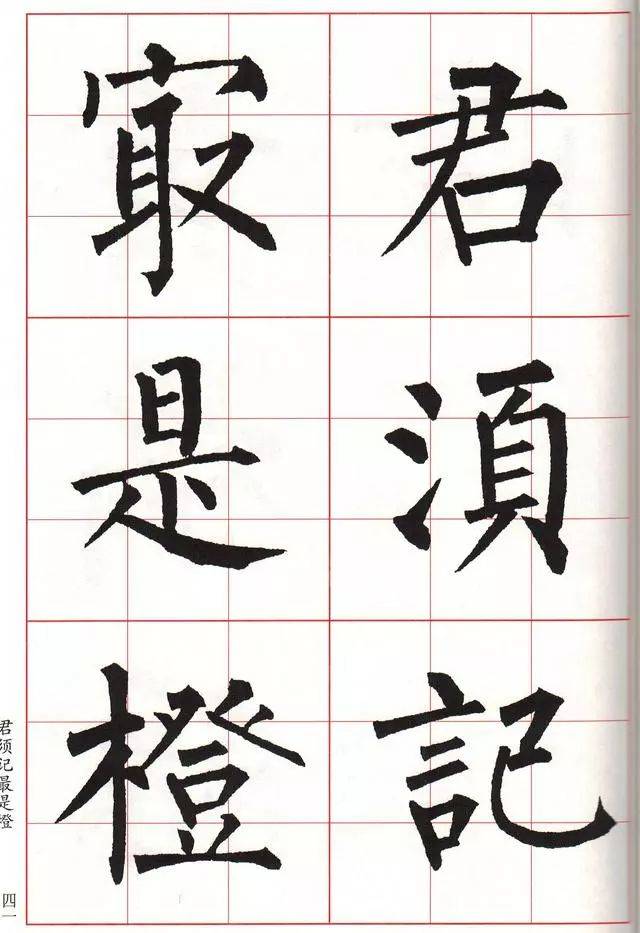 君湏記
㝡是橙
君须记最是橙
四一